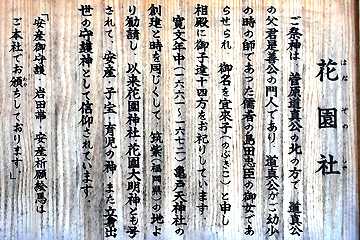 花園社
はなぞのしゃ
ご祭神は、菅原道真公の北の方で、道真公
の父君是善公の門人であり、道真公がご幼少
の時の師であった儒者の島田忠臣の御女であ
らせられ、御名を宣来子(のぶきこ)と申し
相殿に御子達十四方をお祀りしています。
寛文年中(一六六一〜一六七二)亀戸天神社の
創建と時を同じくして、筑紫(福岡県)の地よ
り勧請し、以来花園神社、花園大明神とも号
されて、安産・子宝・育児の神、また立身出
世の守護神として信仰されています。
「安産御守護・岩田帯・安産祈願絵馬は
ご本社でお頒ちしております。」